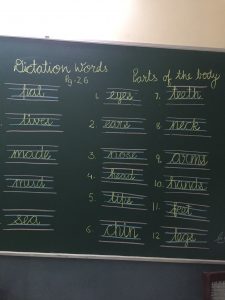 Dictation Words
Pg. 26
pat
lives
made
must
sea
Parts of the body
1. eyes
2. ears
3. nose
4. head
5. lips
6. chin
7. teeth
8. neck
9. arms
10. hands
11. feet
12. legs